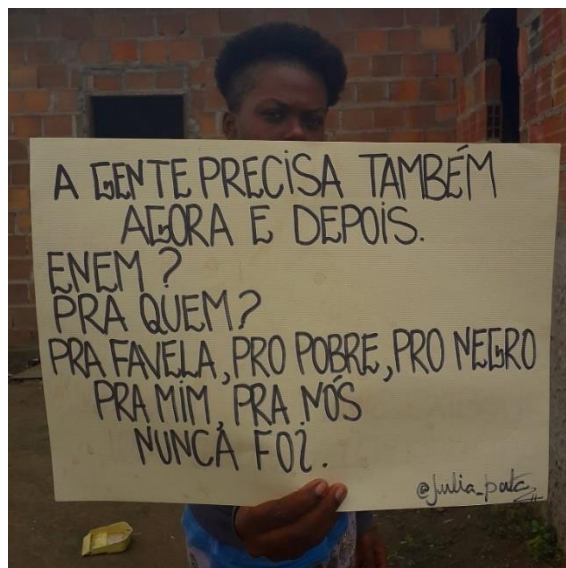 A GENTE PRECISA TAMBÉM
AGORA E DEPOIS.
ENEM?
PRA QUEM?
PRA FAVELA, PRO POBRE, PRO NEGRO
PRA MIM, PRA NÓS
NUNCA FOI.